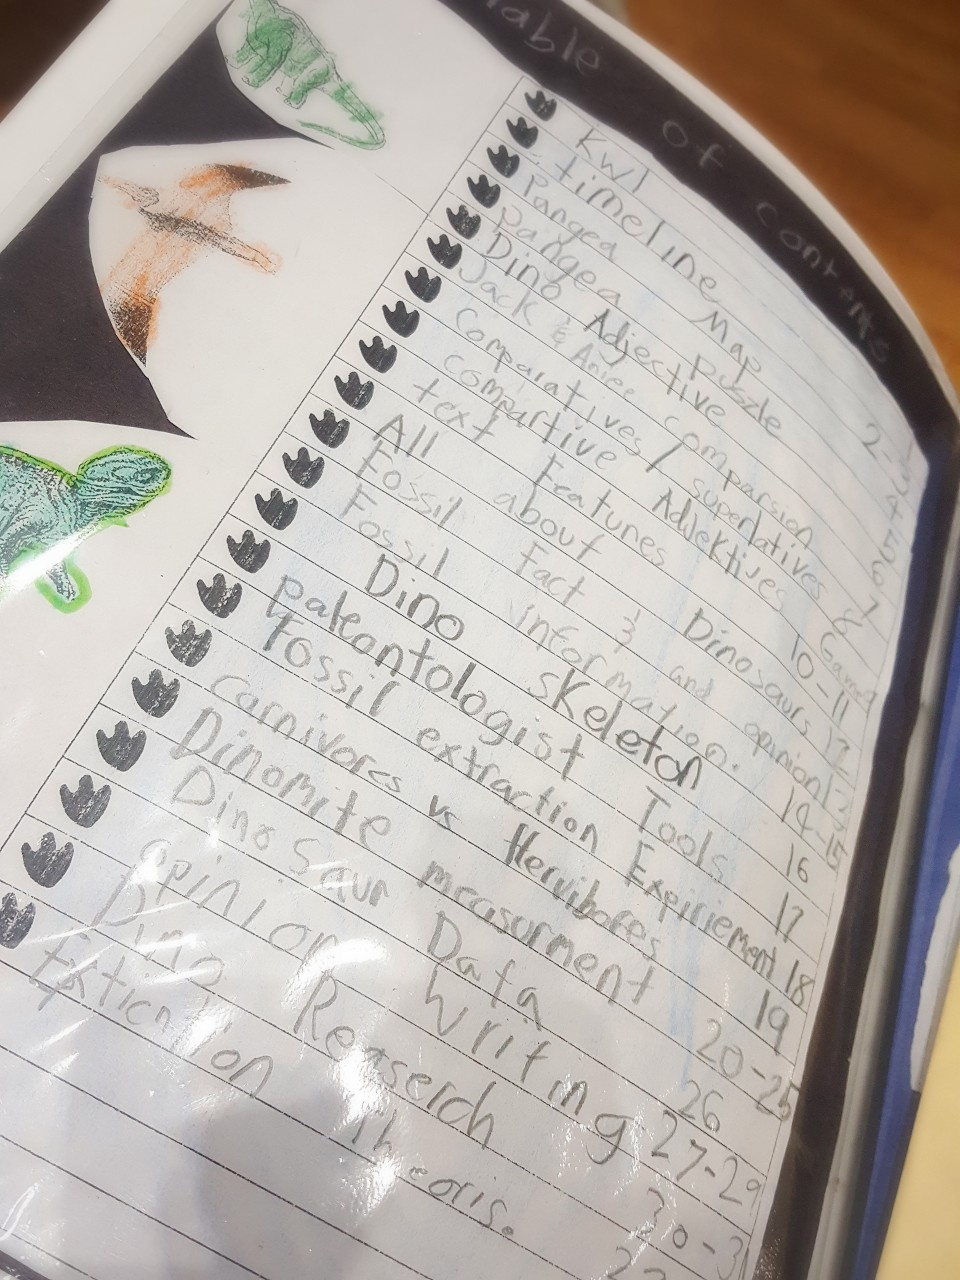 Table of Contents
Kwl
timeline
Pangea Map
Pangea puzzle
Dino Adjective
Jack & Annie comparsion
Comparatives / superlatives
compartive Adjektives
text Features
All about Dinosaurs
Fossil Fact & opinion
Fossil information.
Dino skeleton
paleontologist Tools 16
Fossil extraction Expiriement 17
carnivores vs Hervibores 18
Dinomite measurment 19
Dinosaur Data 20-25
opinion writing 26
Dino Reaserch 27-29
Extiction Theoris. 30-31